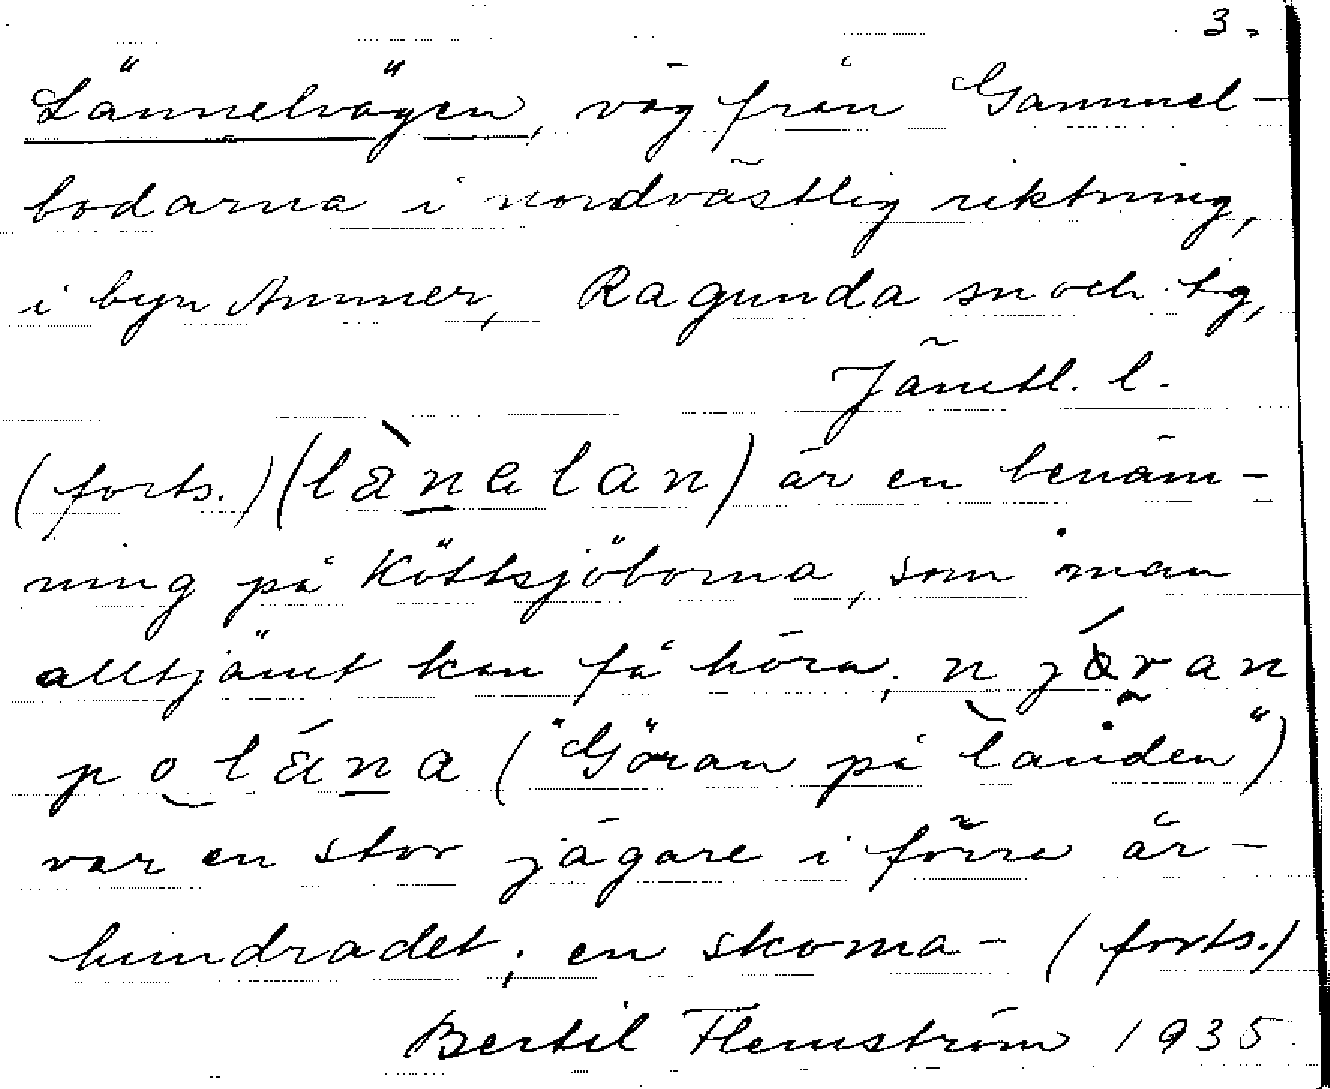 3.
Lännelvägen, väg från Gammel-
bodarna i nordvästlig riktning,
i byn Ammer, Ragunda sn och tg,
Jämtl. l.
(forts.) (lànalan) är en benäm-
ning på Köttsjöborna, som man
alltjämt kan få höra; njǿran
po lána ("Göran på landen")
var en stor jägare i förra år-
hundradet; en skoma- (forts.)
Bertil Flemström 1935.